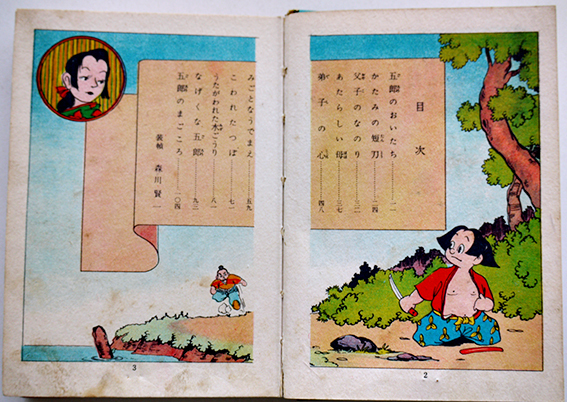 目次
五郎のおいたち
かたみの短刀……二四
父子のなのり……三二
あたらしい母……三七
弟子の心……四八
2
みごとなうでまえ……五九
こわれたつぼ……七一
うたがわれた水ごうり……八一
なげくな五郎……九三
五郎のまごころ……一〇四
装幀 森川賢
3